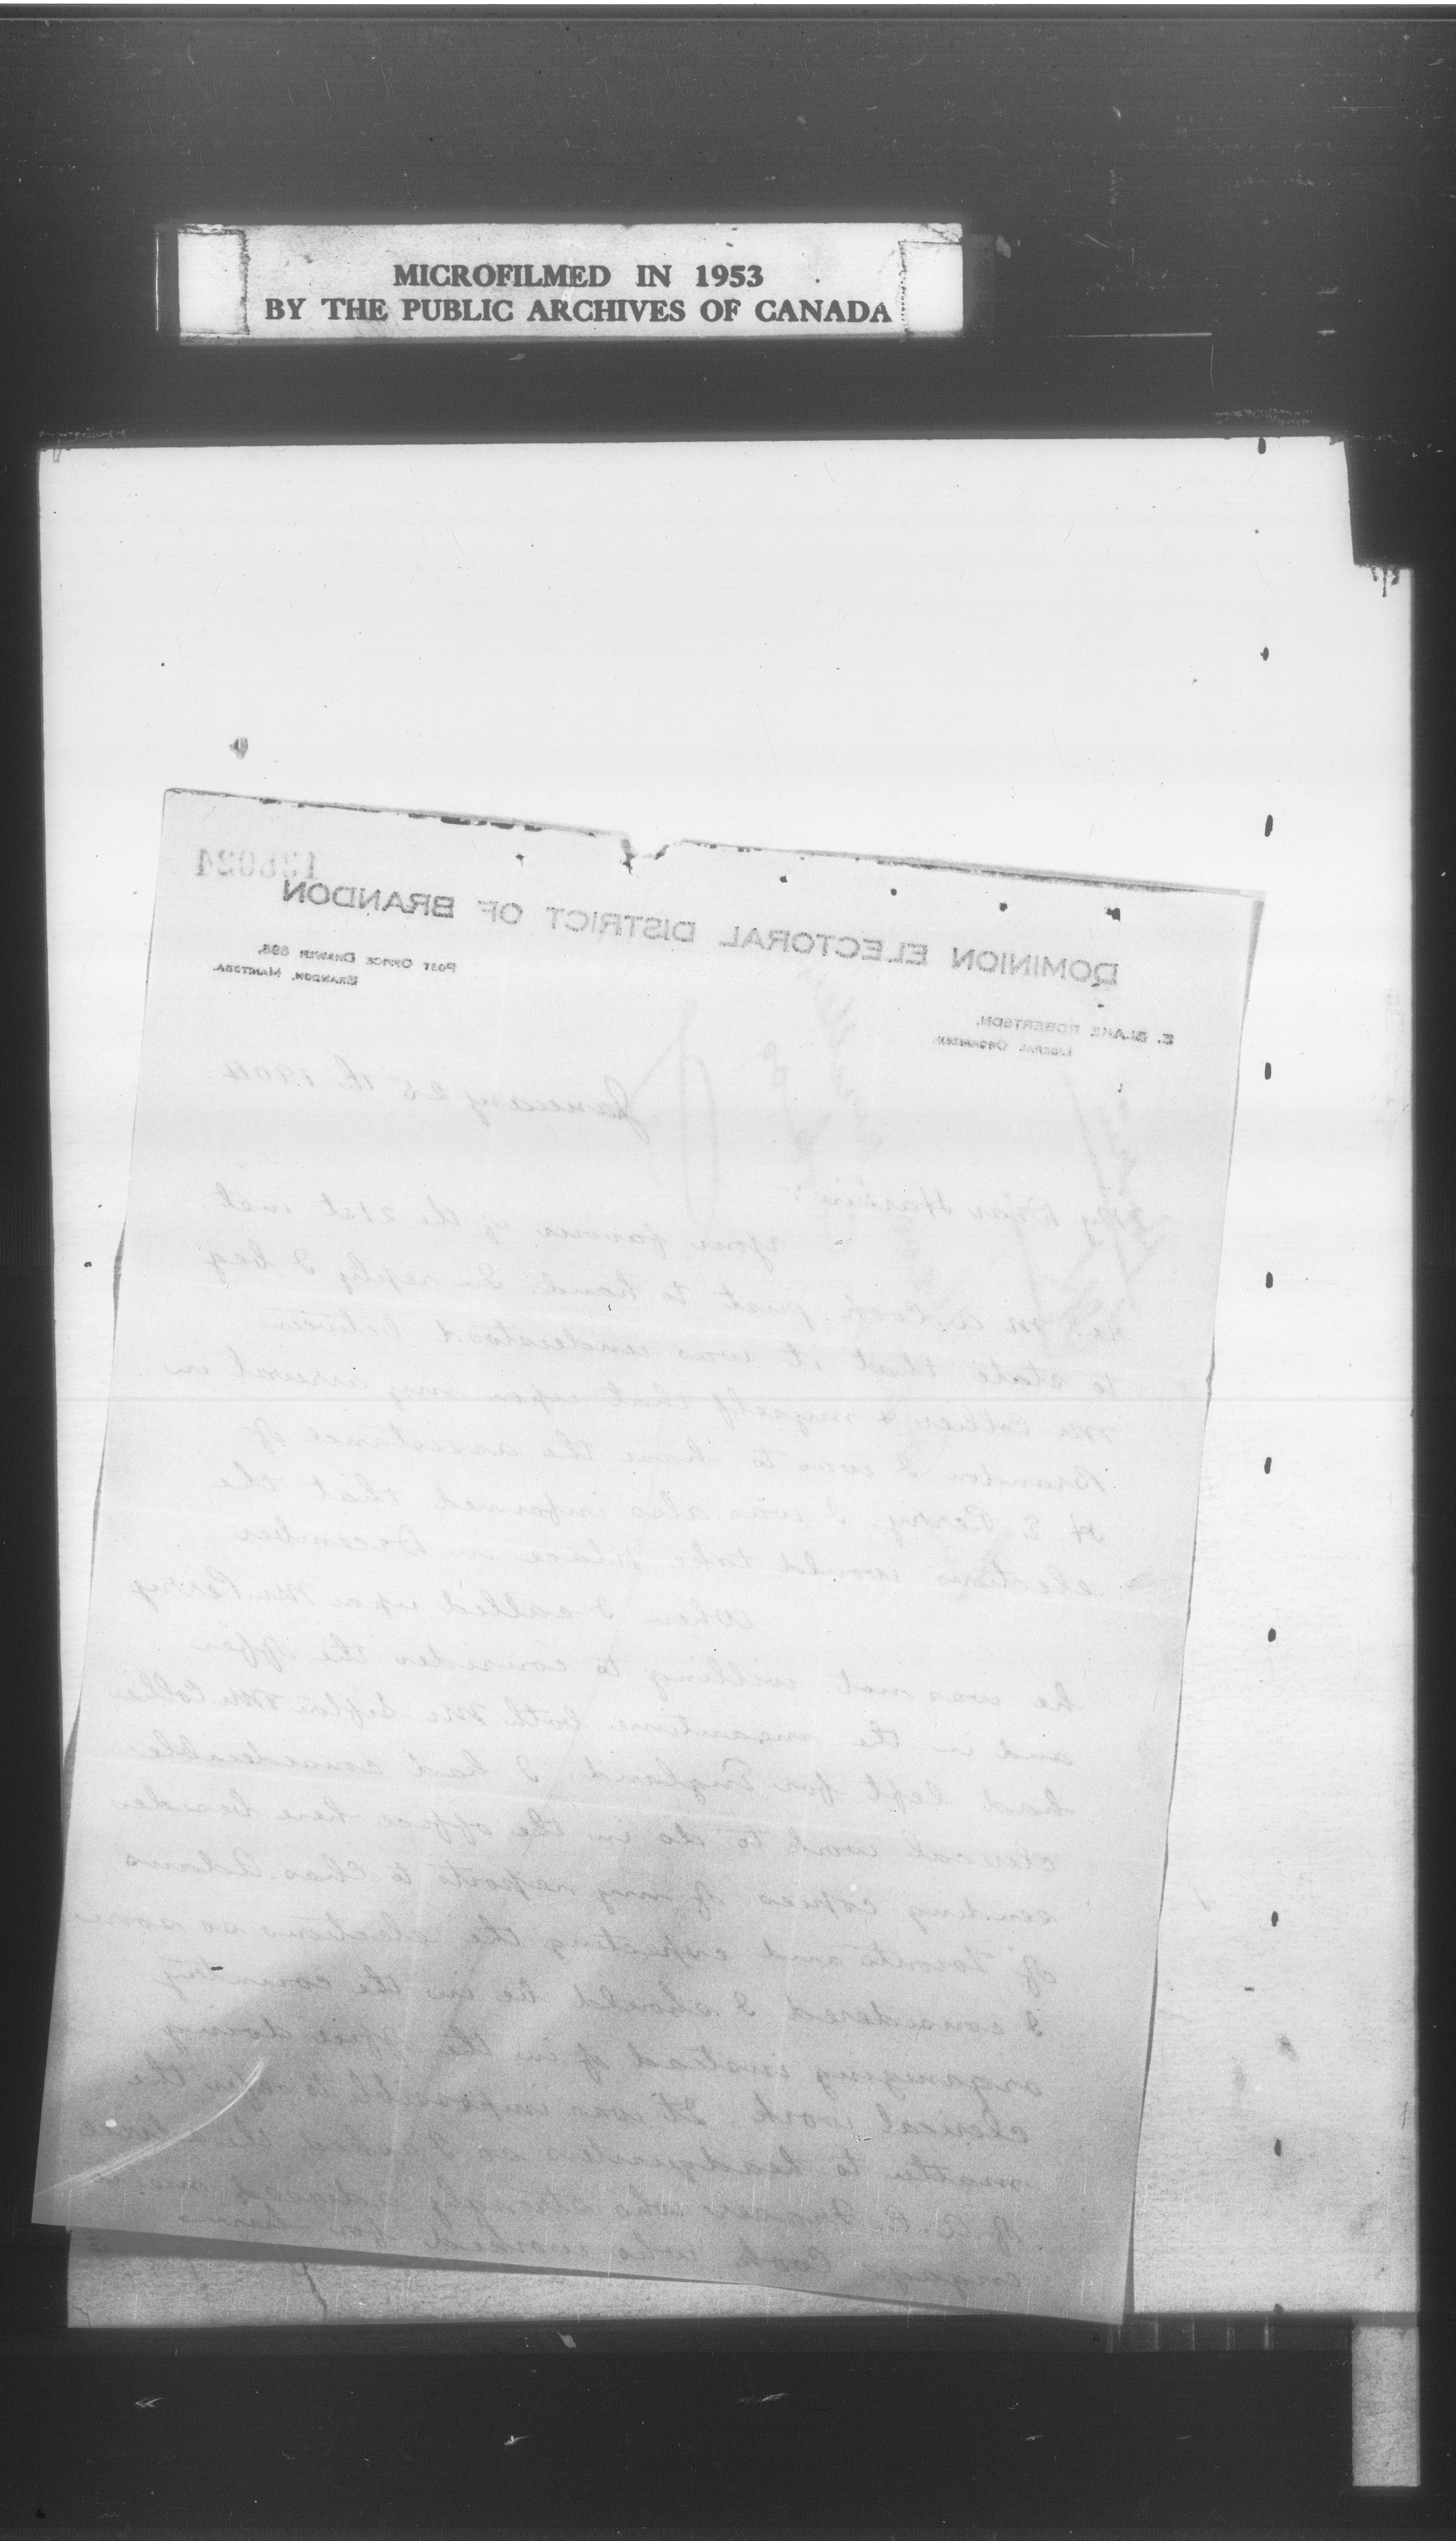 MICROFILMED IN 1953
BY THE PUBLIC ARCHIVES OF CANADA
DOMINION ELECTORAL DISTRICT OF BRANDON
POST OFFICE DRAWER 898,
BRANDON, MANITOBA.
E. BLAKE ROBERTSON,
LIBERAL ORGANIZER.
January 25th 1904.
My Dear Harkin:-
Your favour of the 21st inst.
re. M. A. Cook just to hand. In reply I beg
to state that it was understood between
Mr Collier & myself that upon my arrival in
Brandon I was to have the assistance of
H. E. Perry. I was also informed that the
elections would take place in December
When I called upon Mr. Perry
he was not willing to consider the offer
and in the meantime both Mr. Sifton Mr. Collier
had left for England. I had considerable
clerical work to do in the office here besides
sending copies of my reports to Chas. Adams
of Toronto and expecting the elections so soon
I considered I should be in the country
organizing instead of in the office doing
clerical work. It was impossible to refer the
matter to headquarters so I asked the advice
of A. R. Fraser who strongly advised me to
engage Cook who worked for